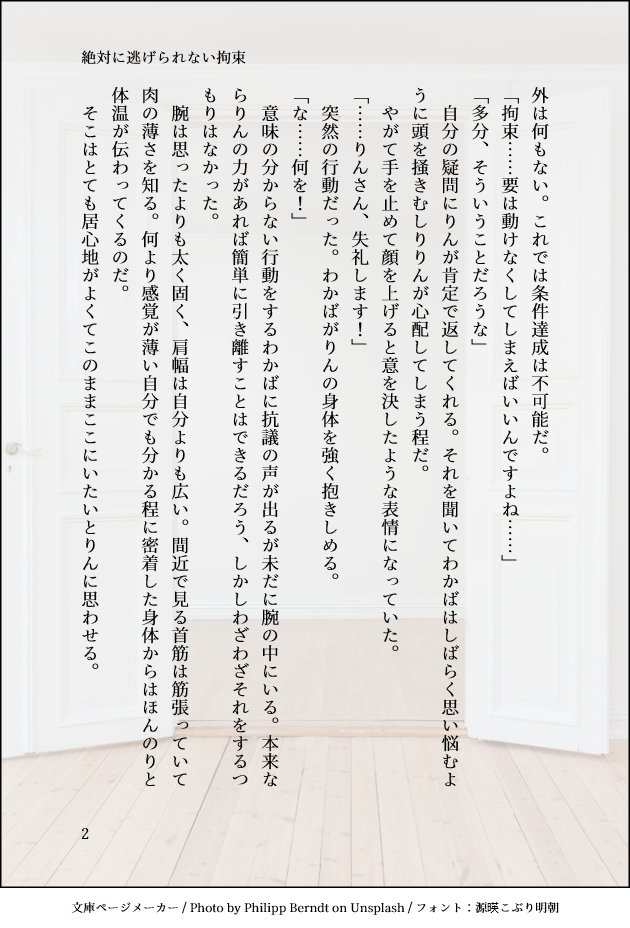 絶対に逃げられない拘束
外は何もない。これでは条件達成は不可能だ。
「拘束……要は動けなくしてしまえばいいんですよね……」
「多分、そういうことだろうな」
　自分の疑問にりんが肯定で返してくれる。それを聞いてわかばはしばらく思い悩むよ
うに頭を掻きむしりりんが心配してしまう程だ。
　やがて手を止めて顔を上げると意を決したような表情になっていた。
「……りんさん、失礼します！」
　突然の行動だった。わかばがりんの身体を強く抱きしめる。
「な……何を！」
　意味の分からない行動をするわかばに抗議の声が出るが未だに腕の中にいる。本来な
らりんの力があれば簡単に引き離すことはできるだろう、しかしわざわざそれをするつ
もりはなかった。
　腕は思ったよりも太く固く、肩幅は自分よりも広い。間近で見る首筋は筋張っていて
肉の薄さを知る。何より感覚が薄い自分でも分かる程に密着した身体からはほんのりと
体温が伝わってくるのだ。
　そこはとても居心地がよくてこのままここにいたいとりんに思わせる。
2
文庫ページメーカー / Photo by Philipp Berndt on Unsplash / フォント：源暎こぶり明朝